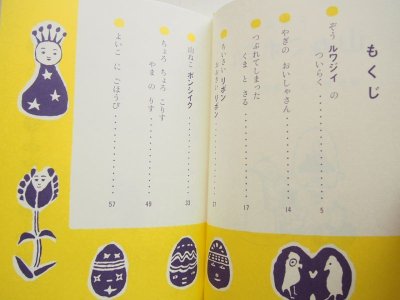 もくじ
ぞう ルワジイ の
ついらく・・・・・・・・・5
やぎの おいしゃさん・・・・・14
つぶれてしまった
くま と さる・・・・・・・17
ちいさい リボン
おおきい リボン・・・・・21
山ねこ ポンシイク・・・・・・33
ちょろ ちょろ こりす
やま の りす・・・・・・・49
よいこ に ごほうび・・・・・57